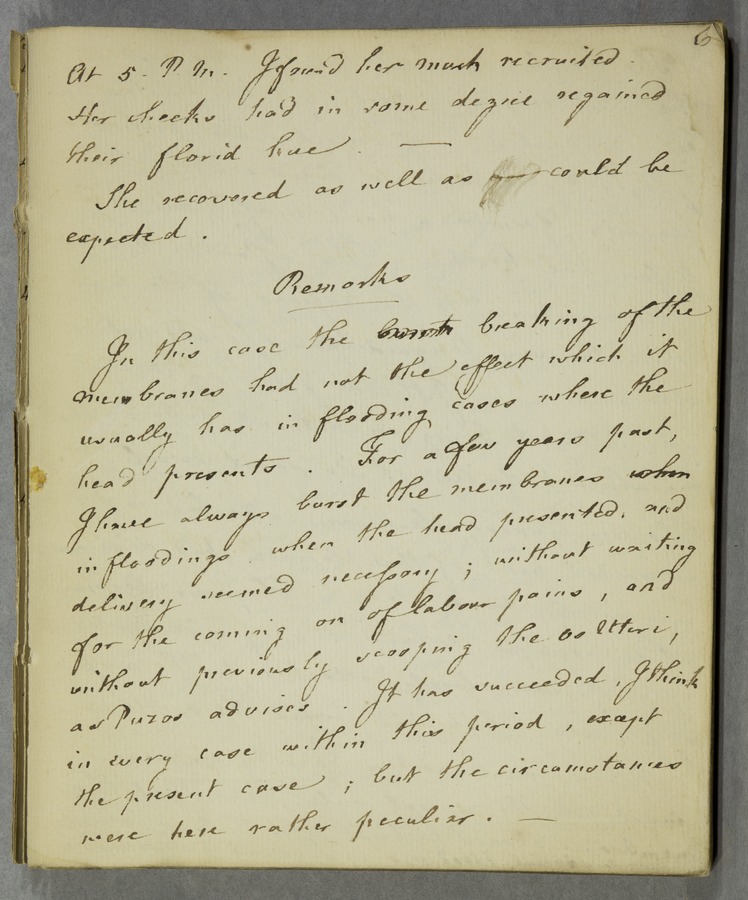 6
At 5. P M. I found her much recruited.
Her cheeks had in some degree regained
their florid hue. —
She recovered as well as could be
expected.
Remarks
In this case the burst breaking of the
membranes had not the effect which it
usually has in flooding cases where the
head presents. For a few years past,
I have always burst the membranes when
in floodings when the head presented, and
delivery seemed necessary; without waiting
for the coming on of labour pains, and
without previously scooping the os Uteri,
as Puzos advises. It has succeeded, I think
in every case within this period, except
the present case; but the circumstances
were here rather peculiar. —